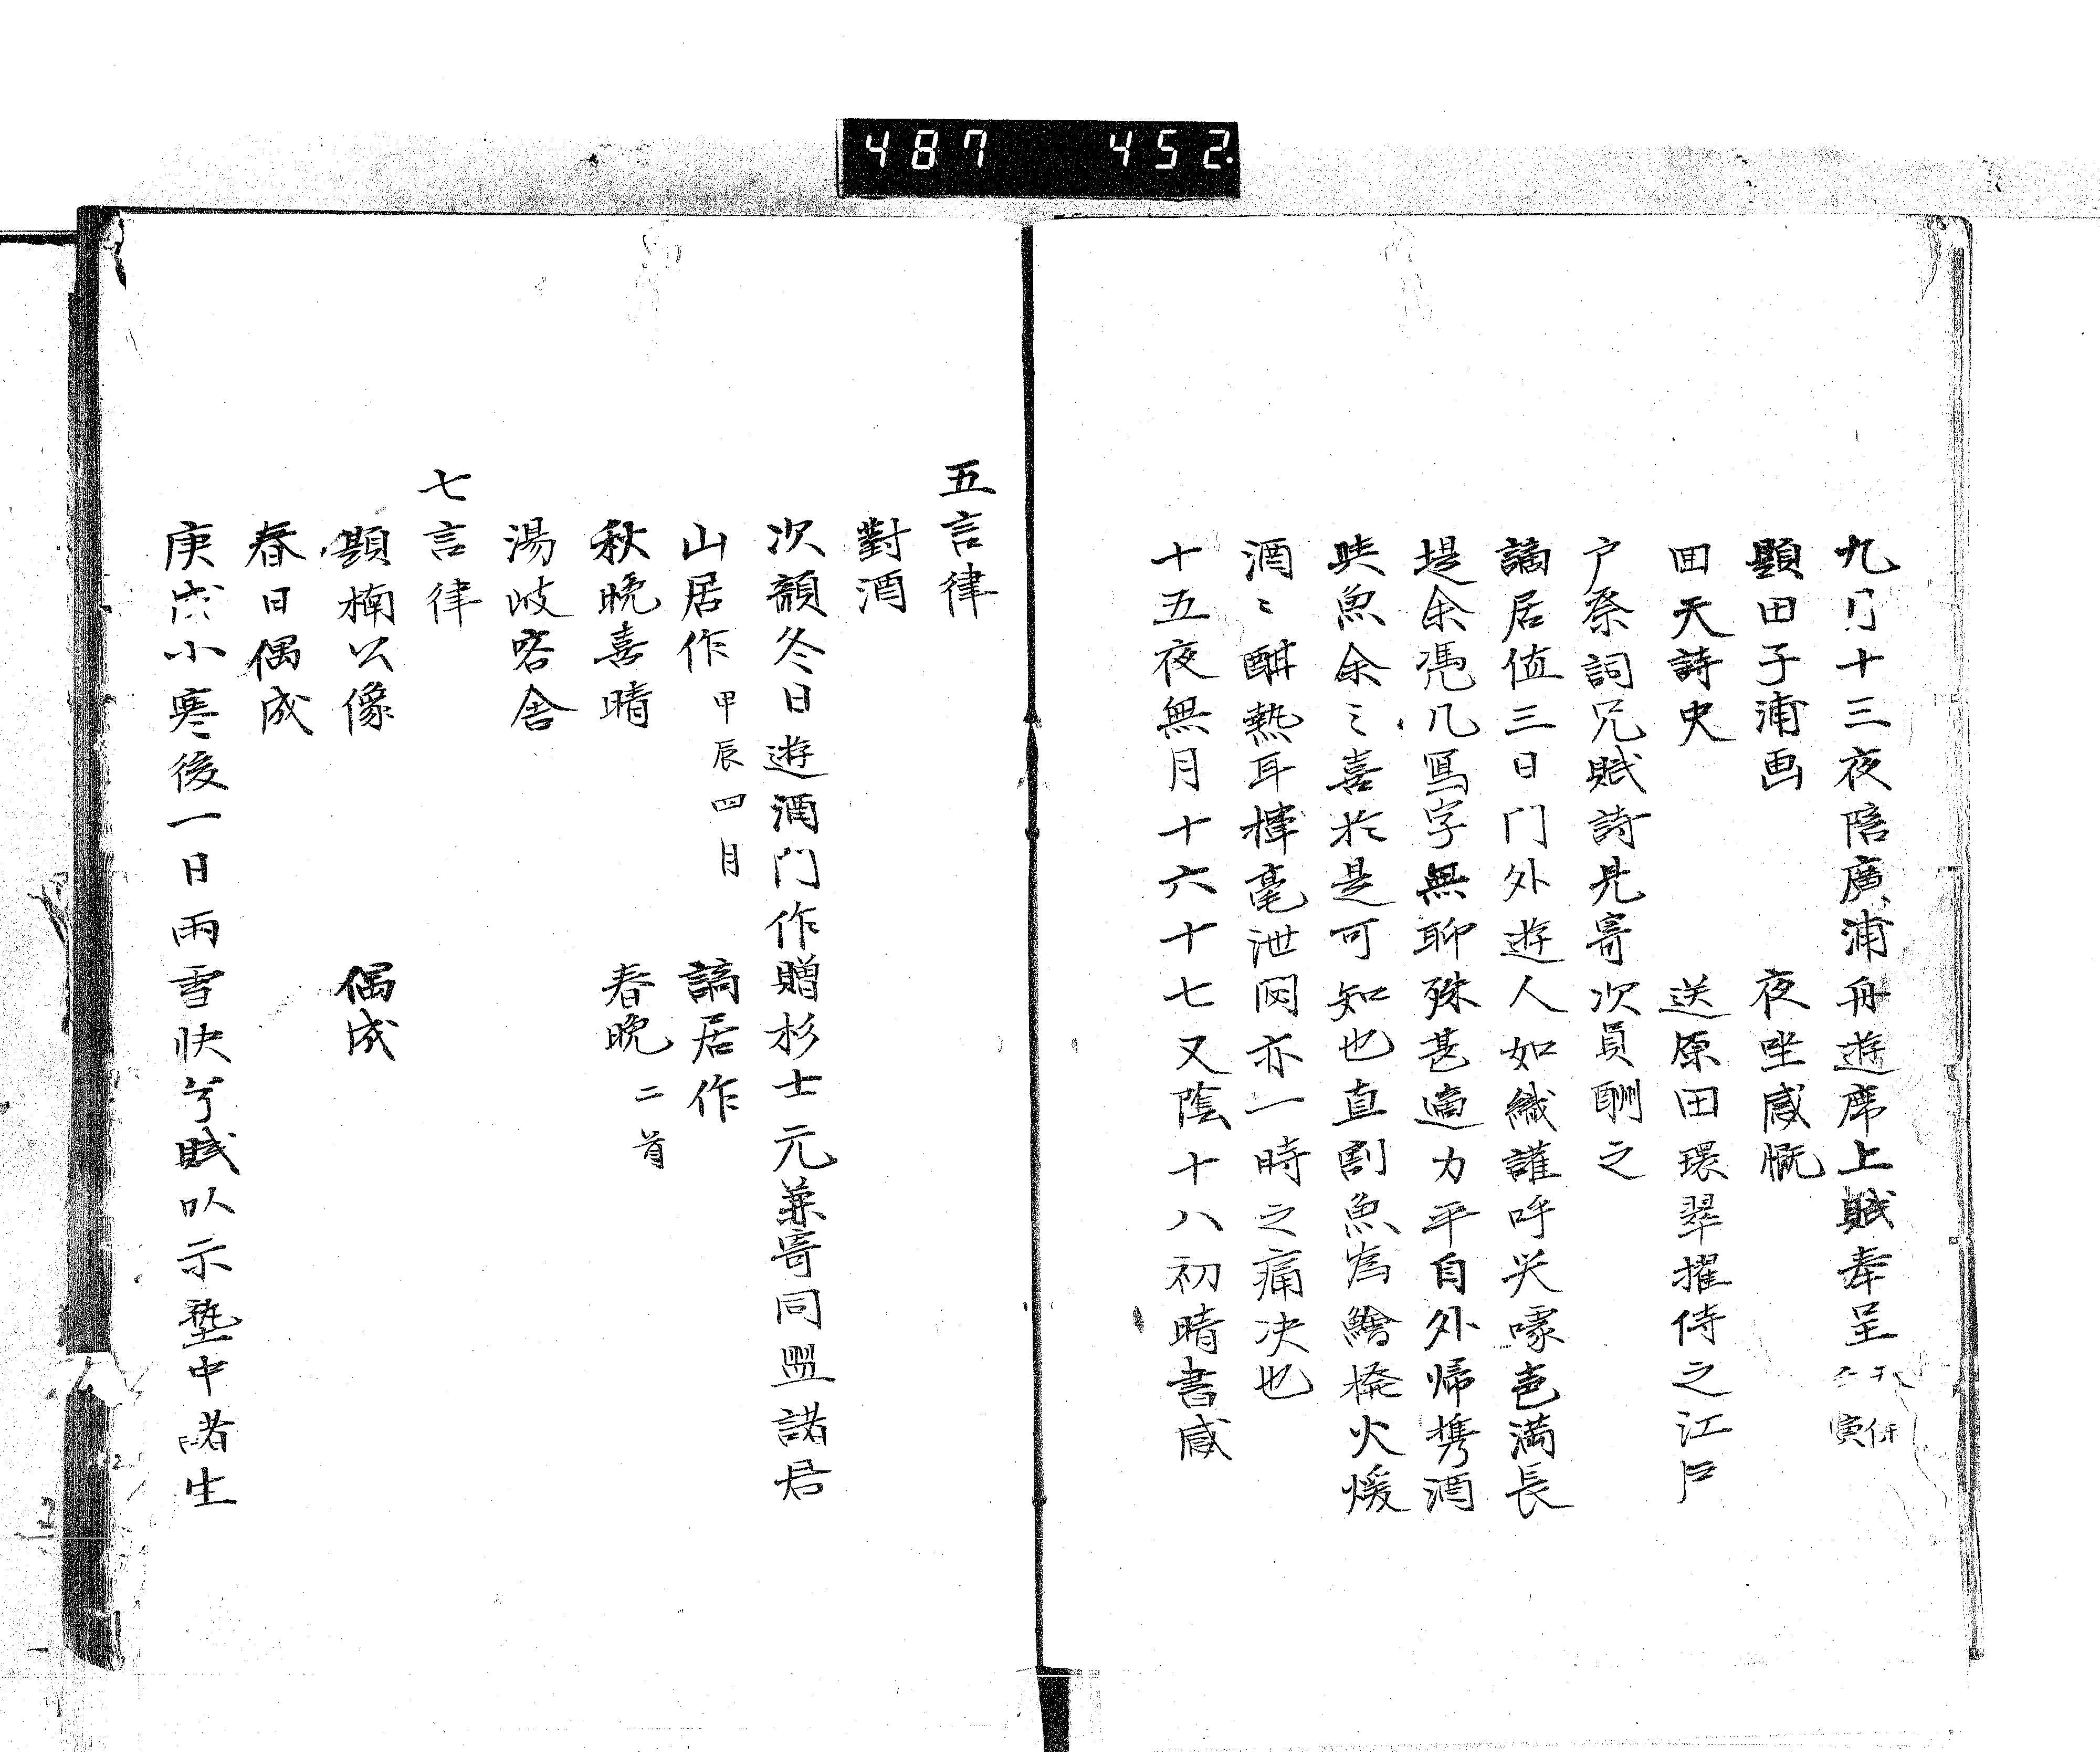 487 452
九月十三夜陪廣浦舟遊席上賦奉呈
題田子浦画 夜坐感慨
回天詩史 送原田環翠擢侍之江戸
戸祭詞兄賦詩見寄次員酬之
謫居値三日门外遊人如織讙呼笑喙邑満長
堤余凭几寫字無聊殊甚適力平自外帰携酒
與魚余〻喜於是可知也直割魚為鱠橈火煖
酒〻酣熱耳揮毫泄悶亦一時之痛决也
十五夜無月十六十七又陰十八初晴書感
五言律
對酒
次韻冬日遊酒门作贈杉士元兼寄同盟諸君
山居作 甲辰四月 謫居作
秋晩喜晴 春晩 二首
湯岐客舎
七言律
題楠公像 偶成
春日偶成
庚戌小寒後一日雨雪快兮賦以示塾中諸生